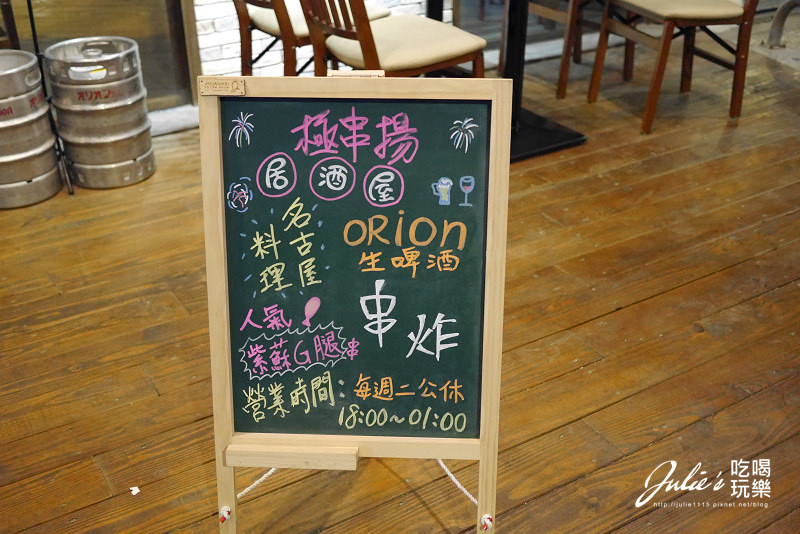 極串揚
居酒屋
名古屋
料理
ORion
生啤酒
串炸
人氣
紫蘇G腿串
營業時間：每週二公休
18:00~01:00
オリオン
Julie's 吃喝玩樂
http://julie1115.pixnet.net/blog